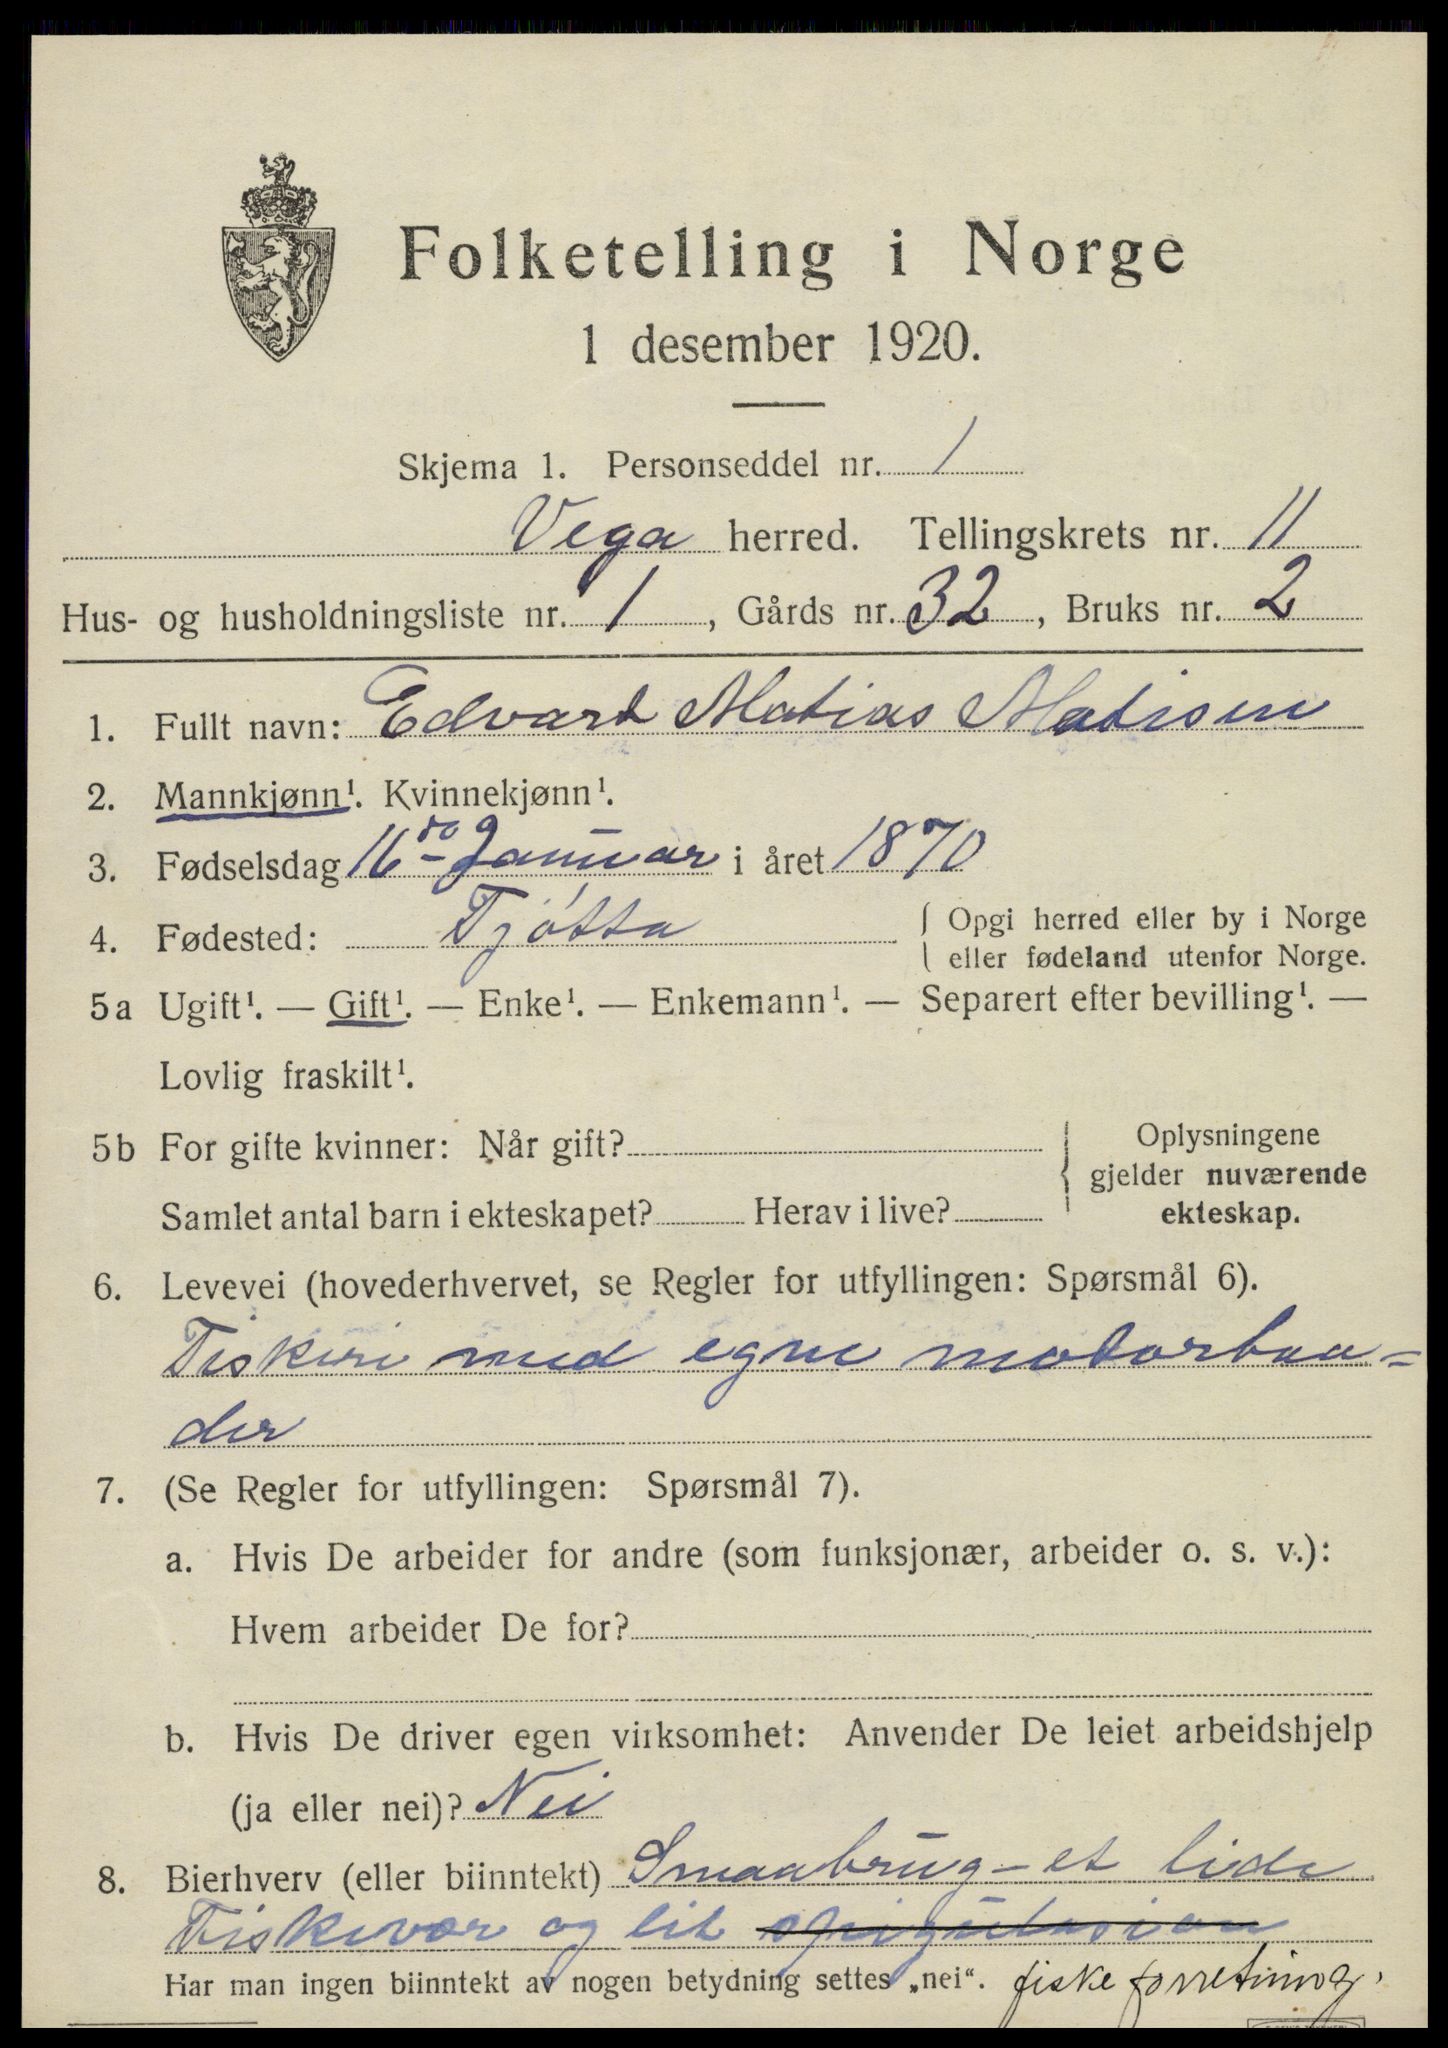 Folketelling i Norge
1 desember 1920.
Skjema 1. Personseddel nr. 1
Vega herred. Tellingskrets nr. 11
Hus- og husholdningsliste nr. 1, Gårds nr. 32, Bruks nr. 2
1. Fullt navn: Edvard Matias Matisen
2. Mannkjønn¹. Kvinnekjønn¹.
3. Fødselsdag 16de Januar i året 1870
4. Fødested: Tjøtta { Opgi herred eller by i Norge
eller fødeland utenfor Norge.
5a Ugift¹. — Gift¹. — Enke¹. — Enkemann¹. — Separert efter bevilling¹. —
Lovlig fraskilt¹.
5b For gifte kvinner: Når gift?
Samlet antal barn i ekteskapet? Herav i live?
Oplysningene
gjelder nuværende
ekteskap.
6. Levevei (hovederhvervet, se Regler for utfyllingen: Spørsmål 6).
Fiskeri med egne motorbaa-
der
7. (Se Regler for utfyllingen: Spørsmål 7).
a. Hvis De arbeider for andre (som funksjonær, arbeider o. s. v.):
Hvem arbeider De for?
b. Hvis De driver egen virksomhet: Anvender De leiet arbeidshjelp
(ja eller nei)? Nei
8. Bierhverv (eller biinntekt) Smaabrug - et lide
Fiskevær og lit spigulasion
Har man ingen biinntekt av nogen betydning settes „nei“. fiskeforretning.